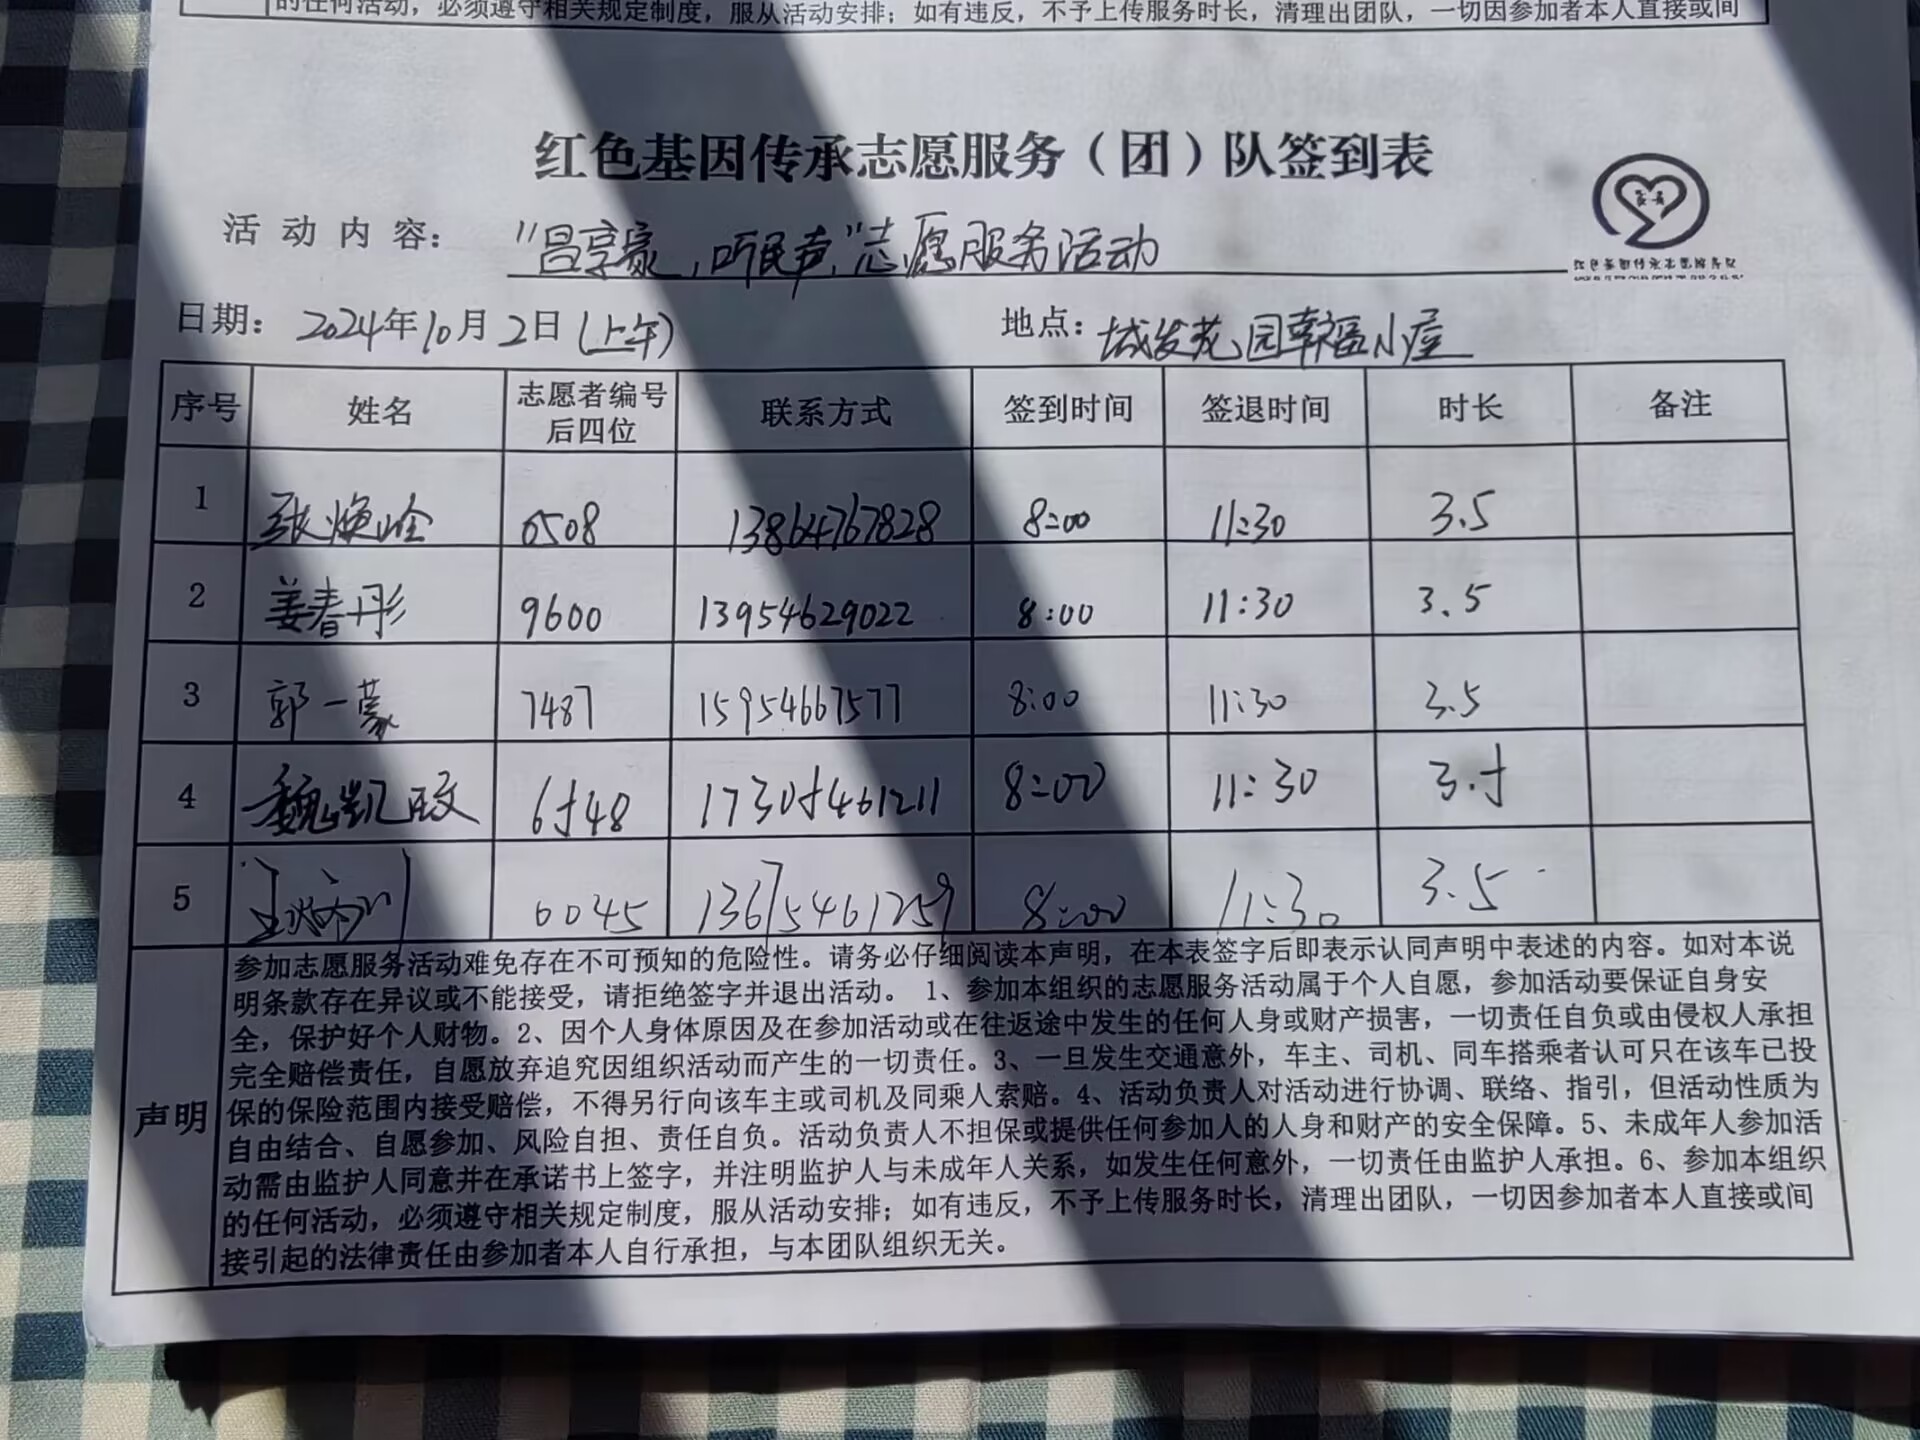 的任何活动，必须遵守相关规定制度，服从活动安排；如有违反，不予上传服务时长，清理出团队，一切因参加者本人直接或间
红色基因传承志愿服务（团）队签到表
活动内容： “吕享豪，听民声”志愿服务活动
日期：2024年10月2日（上午） 地点：城发花园幸福小屋
序号 姓名 志愿者编号后四位 联系方式 签到时间 签退时间 时长 备注
1 张焕 0508 13864767828 8:00 11:30 3.5
2 姜春彤 9600 13954629022 8:00 11:30 3.5
3 郭一蒙 7487 15954667577 8:00 11:30 3.5
4 魏凯旼 6548 17305461211 8:00 11:30 3.5
5 6045 13675461259 8:00 11:30 3.5
声明
参加志愿服务活动难免存在不可预知的危险性。请务必仔细阅读本声明，在本表签字后即表示认同声明中表述的内容。如对本说
明条款存在异议或不能接受，请拒绝签字并退出活动。 1、参加本组织的志愿服务活动属于个人自愿，参加活动要保证自身安
全，保护好个人财物。2、因个人身体原因及在参加活动或在往返途中发生的任何人身或财产损害，一切责任自负或由侵权人承担
完全赔偿责任，自愿放弃追究因组织活动而产生的一切责任。3、一旦发生交通意外，车主、司机、同车搭乘者认可只在该车已投
保的保险范围内接受赔偿，不得另行向该车主或司机及同乘人索赔。4、活动负责人对活动进行协调、联络、指引，但活动性质为
自由结合、自愿参加、风险自担、责任自负。活动负责人不担保或提供任何参加人的人身和财产的安全保障。5、未成年人参加活
动需由监护人同意并在承诺书上签字，并注明监护人与未成年人关系，如发生任何意外，一切责任由监护人承担。6、参加本组织
的任何活动，必须遵守相关规定制度，服从活动安排；如有违反，不予上传服务时长，清理出团队，一切因参加者本人直接或间
接引起的法律责任由参加者本人自行承担，与本团队组织无关。